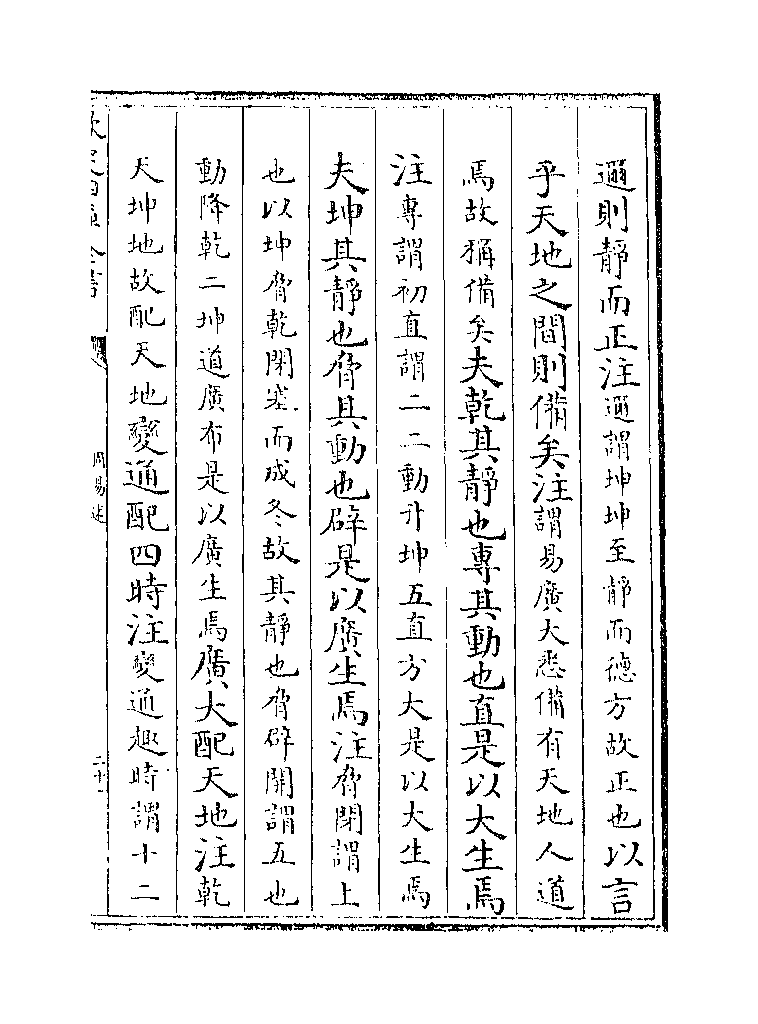 邇則靜而正注邇謂坤坤至靜而德方故正也以言
乎天地之間則備矣注謂易廣大悉備有天地人道
焉故稱備矣夫乾其靜也專其動也直是以大生焉
注專謂初直謂二二動升坤五直方大是以大生焉
夫坤其靜也脅其動也辟是以廣生焉注脅閉謂上
也以坤脅乾閉塞而成冬故其靜也脅辟開謂五也
動降乾二坤道廣布是以廣生焉廣大配天地注乾
天坤地故配天地變通配四時注變通趣時謂十二
欽定四庫全書
周易述
二十一